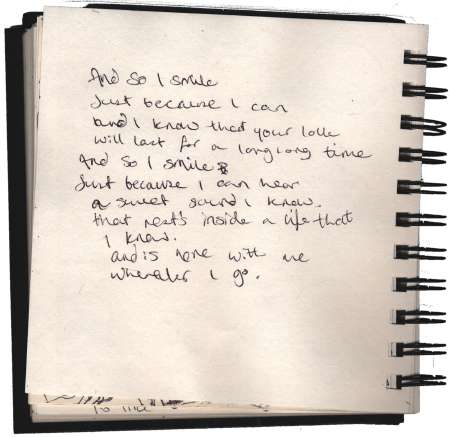 And so I smile
Just because I can
and I know that your love
will last for a long long time
And so I smile
Just because I can hear
a sweet sound I know.
that rests inside a life that
I know.
and is here with me
wherever I go.
to